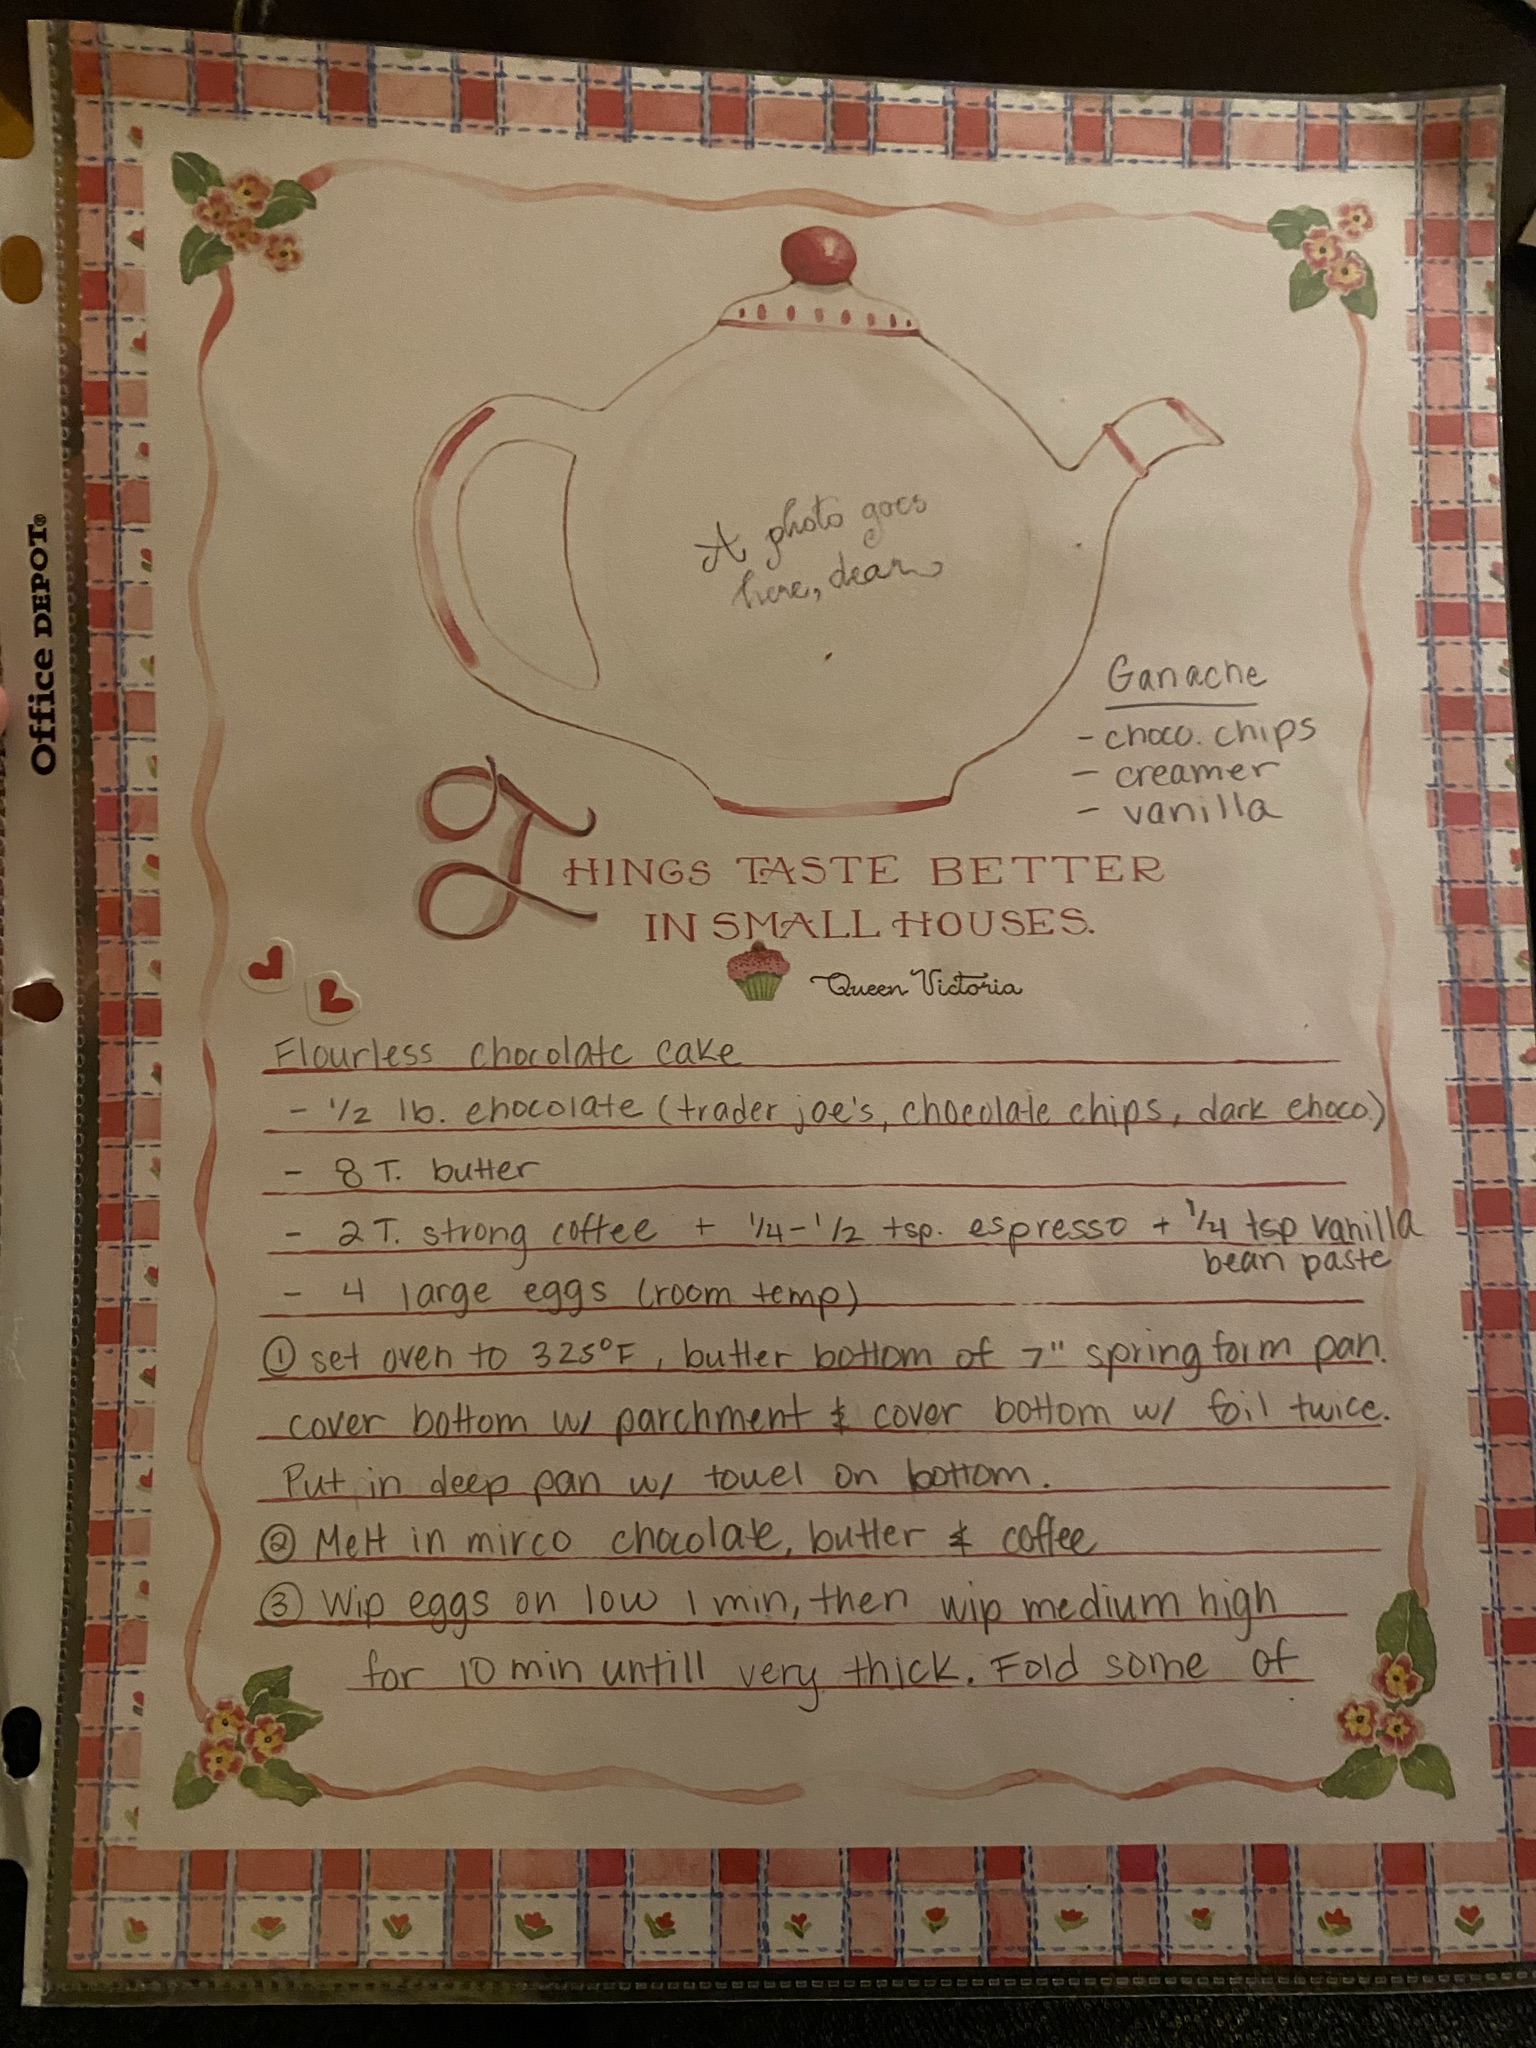 Office DEPOT®
A photo goes
here, dear
Ganache
- choco. chips
- creamer
- vanilla
THINGS TASTE BETTER
IN SMALL HOUSES.
Queen Victoria
Flourless chocolate cake
- 1/2 lb. chocolate (trader joe's, chocolate chips, dark choco.)
- 8 T. butter
- 2 T. strong coffee + 1/4-1/2 tsp. espresso + 1/4 tsp vanilla
bean paste
- 4 large eggs (room temp)
① set oven to 325°F, butter bottom of 7" springform pan.
cover bottom w/ parchment & cover bottom w/ foil twice.
Put in deep pan w/ towel on bottom.
② Melt in mirco chocolate, butter & coffee
③ Wip eggs on low 1 min, then wip medium high
for 10 min untill very thick. Fold some of